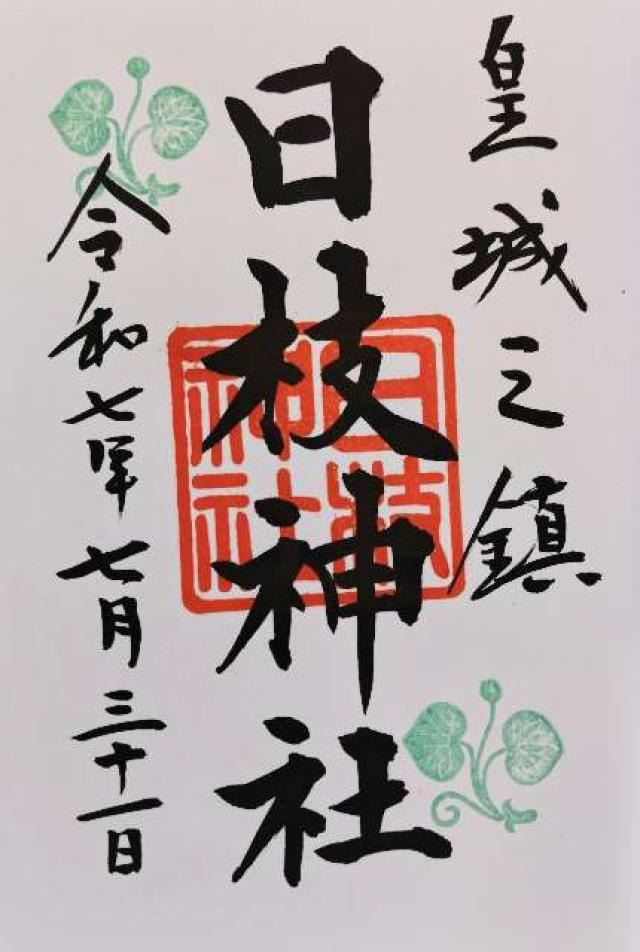 皇城之鎮
日枝神社
日枝神社
令和七年七月三十一日